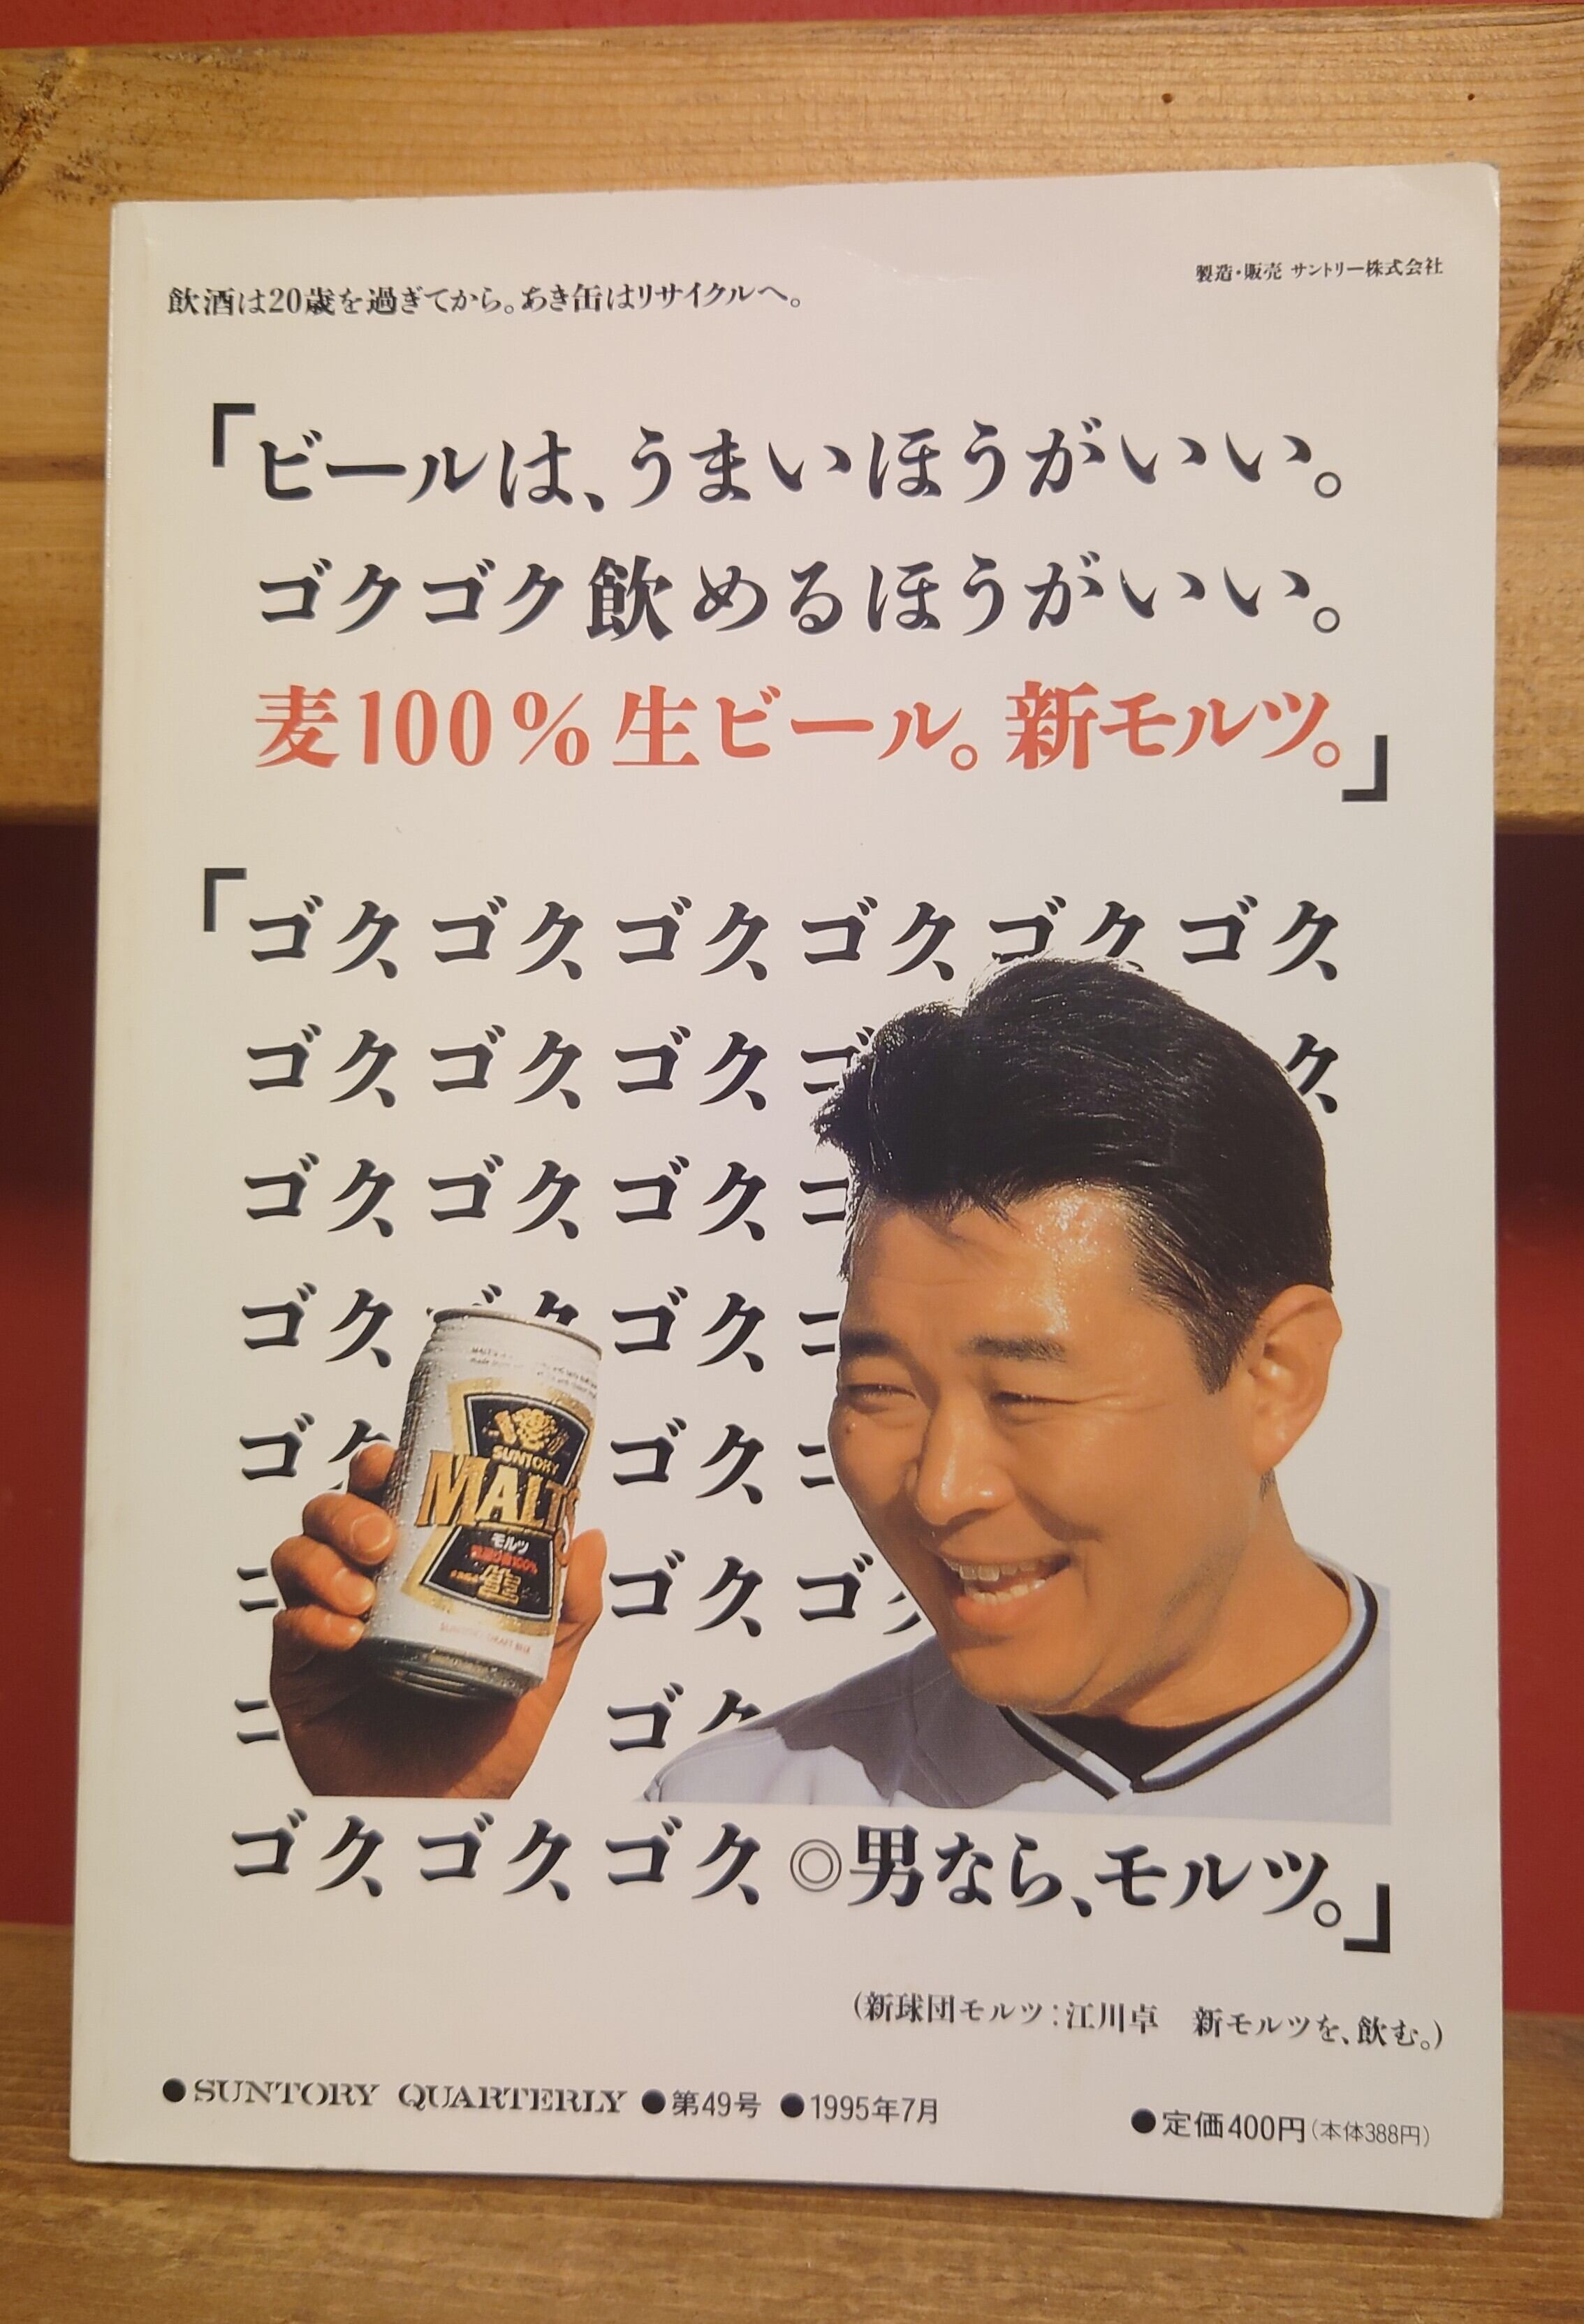 飲酒は20歳を過ぎてから。あき缶はリサイクルへ。
製造・販売 サントリー株式会社
「ビールは、うまいほうがいい。
ゴクゴク飲めるほうがいい。
麦100%生ビール。新モルツ。」
「ゴク、ゴク、ゴク、ゴク、ゴク、ゴク、
ゴク、ゴク、ゴク、ゴ ク、
ゴク、ゴク、ゴク、ゴ
ゴク、ゴク、ゴク、ゴ
ゴク ゴク、ゴ
ゴ ゴク、ゴク
ゴ ゴク
ゴク、ゴク、ゴク、◎男なら、モルツ。」
SUNTORY
MALT'S
モルツ
生
(新球団モルツ:江川卓 新モルツを、飲む。)
●SUNTORY QUARTERLY ●第49号 ●1995年7月
●定価400円(本体388円)